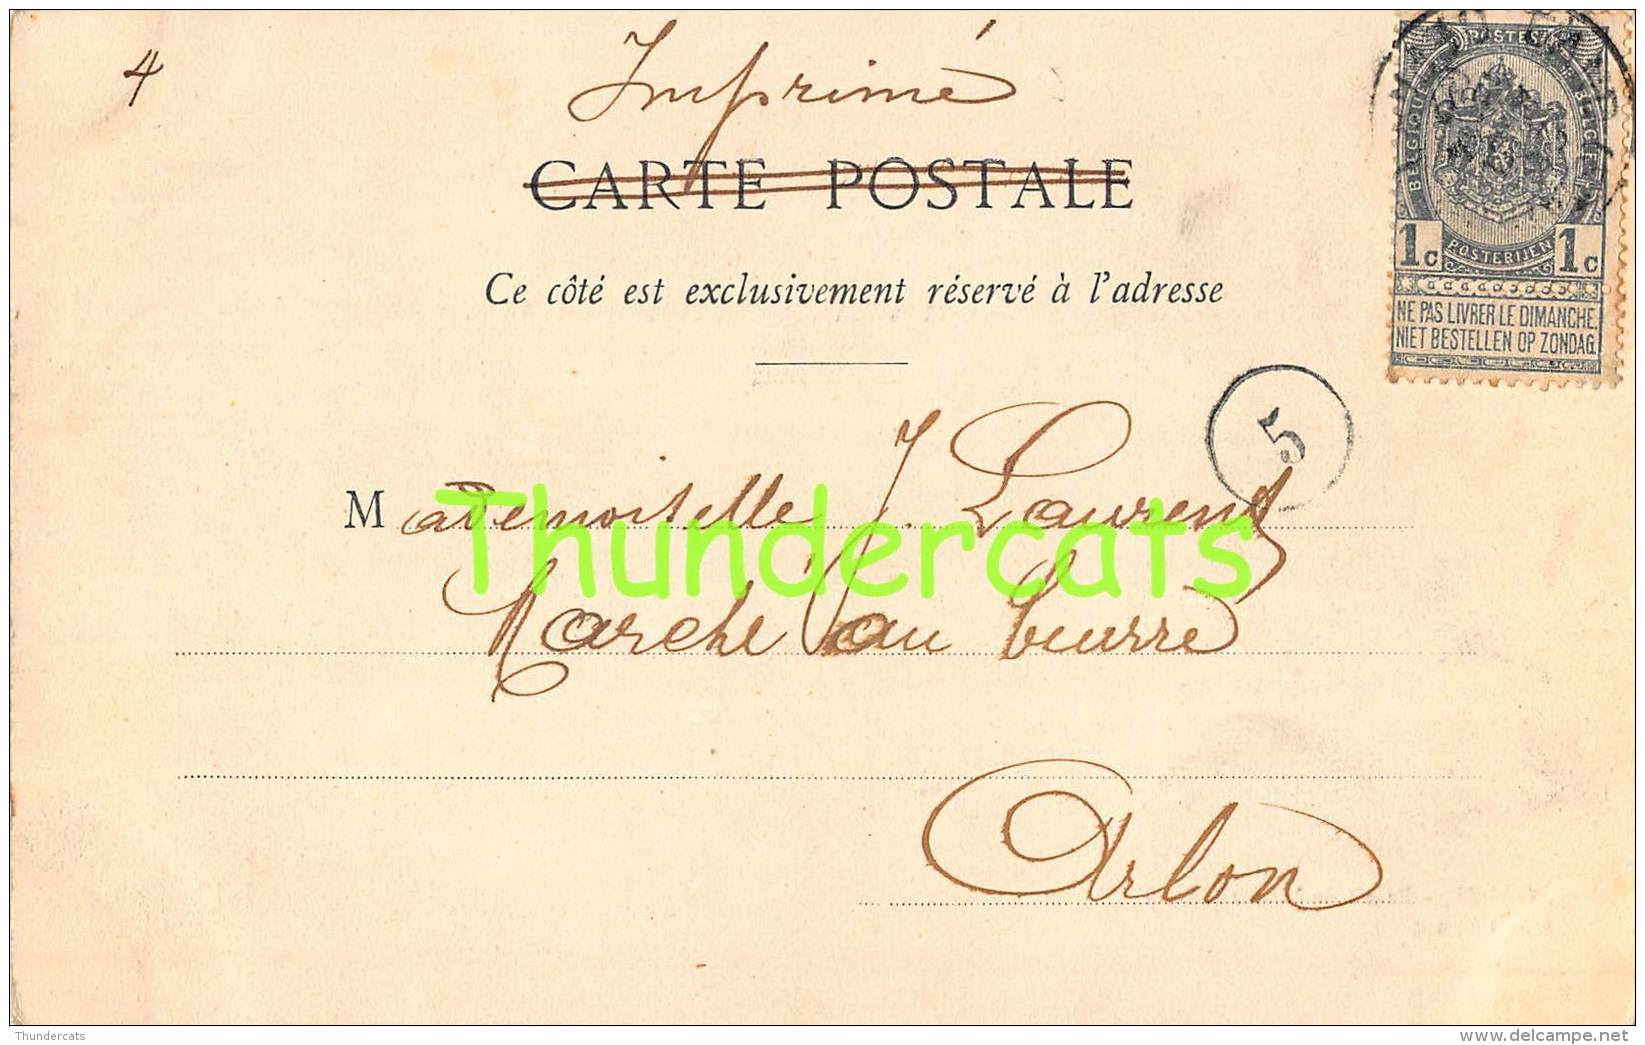 4
Imprimé
CARTE POSTALE
Ce côté est exclusivement réservé à l'adresse
POSTES
BELGIQUE
BELGIË
1c
POSTERIJEN
1c
NE PAS LIVRER LE DIMANCHE,
NIET BESTELLEN OP ZONDAG.
5
Mademoiselle J. Laurent
Thundercats
Marché au beurre
Arlon
Thundercats
www.delcampe.net